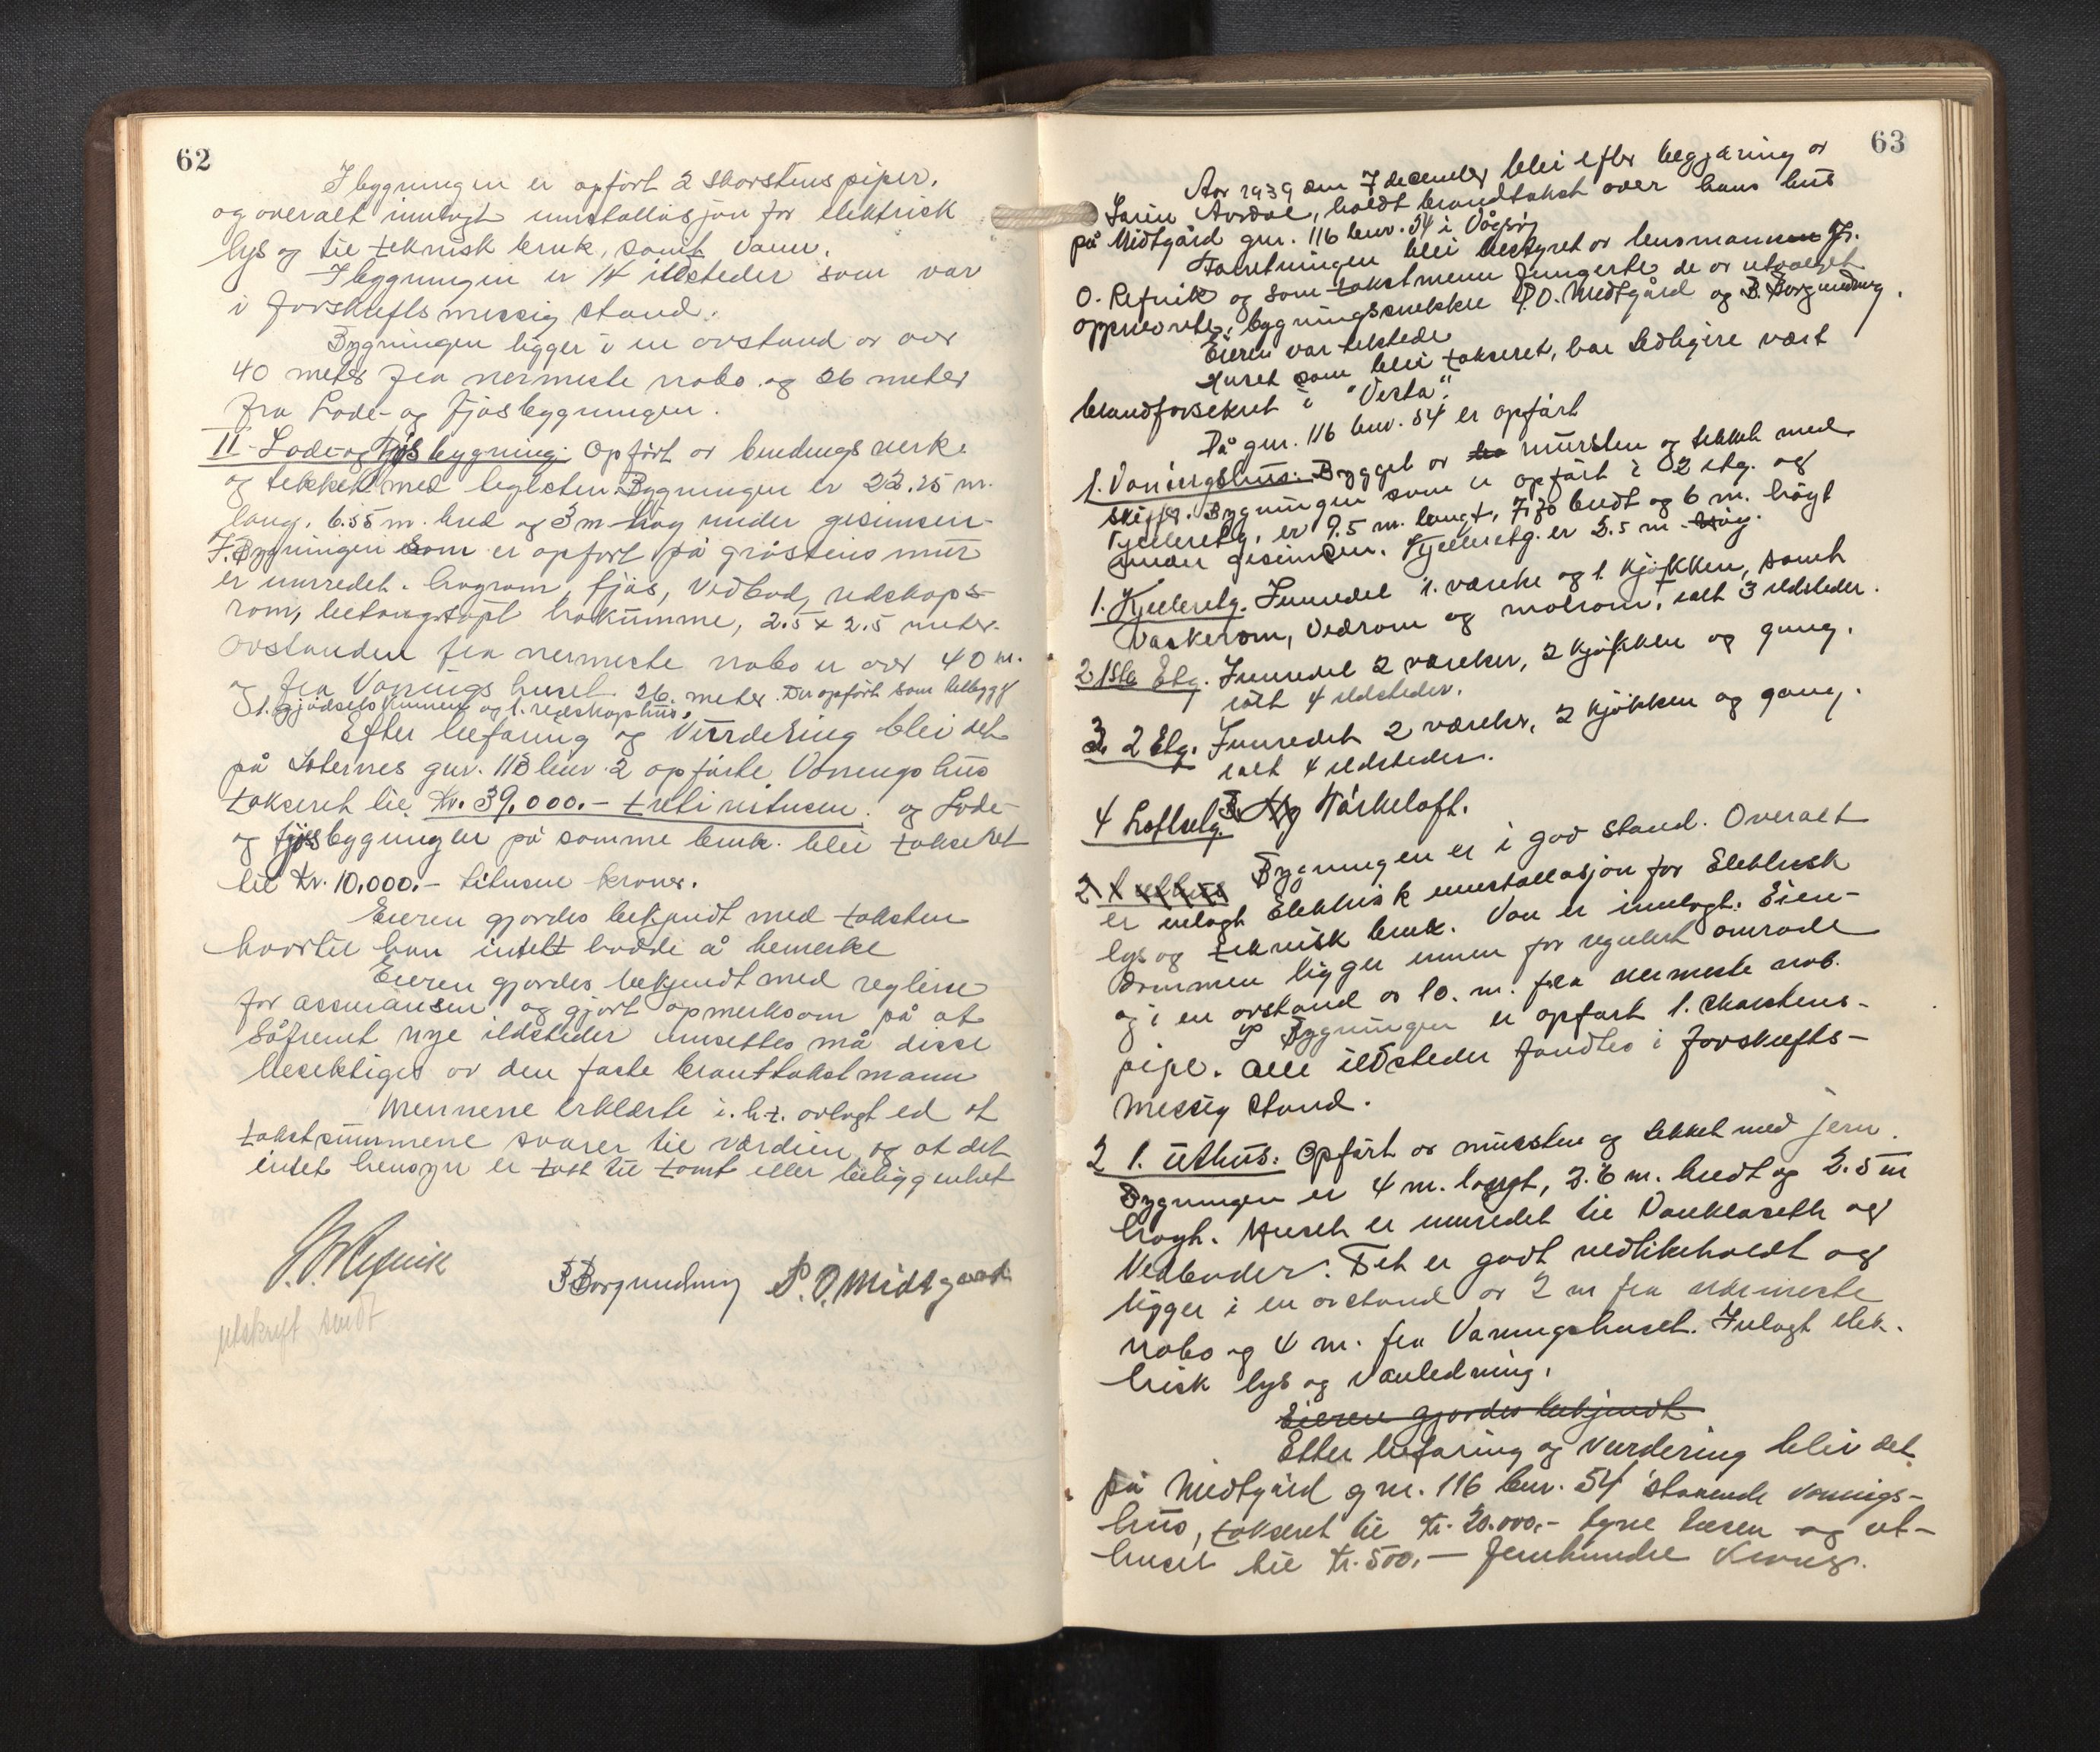 62
I bygningen er opført 2 skorstens piper,
og overalt innlagt innstallasjon for elektrisk
lys og til teknisk bruk, samt vann.
I byggningen er 14 ildsteder som var
i forskriftsmessig stand.
Bygningen ligger i en avstand av over
40 meter fra nermeste nabo og 26 meter
fra Løde- og fjøsbygningen.
II - Løde- og Fjøsbygning: Opført av bindingsverk
og tekket med teglsten. Bygningen er 22.25 m.
lang, 6.55 m. bred og 3 m høg under gesimsen.
I. Bygningen som er opført på gråstens mur
er innredet. høyrom, fjøs, vedbod, redskaps-
rom, betongstøpt hakumme, 2.5 x 2.5 meter.
Avstanden fra nermeste nabo er over 40 m.
og fra Vånings huset 26. meter. Der opført som tilbygg
1. gjødselskummer og 1. redskaphus.
Efter befaring og Vurdering blei det
på Sternes gnr. 113 bnr. 2 opførte Vånings hus
takseret til kr. 39,000.- trettinitusen. og Løde-
og fjøsbygningen på samme bruk. blei takseret
til kr. 10,000.- titusen kroner.
Eieren gjordes bekjendt med taksten
hvortil han intet hadde å bemerke
Eieren gjordes bekjendt med reglene
for assuransen og gjort opmerksom på at
såfremt nye ildsteder innsettes må disse
besiktiges av den faste branttakstmann
Mennene erklærte i. h. t. avlagt ed at
takstsummene svarer til værdien og at det
intet hensyn er tatt til tomt eller beliggenhet
B Borgundvåg P. O. Midtgaard
utskrift sendt
63
Aar 1939 den 7 december blei efter begjæring av
Søren Årsdal, holdt brandtakst over hans hus
på Midtgård gnr. 116 bnr. 54 i Vågsøy
Forretningen blei bestyret av lensmannen J.
O. Refvik og som takstmenn fungerte de av utvalget
oppnevnte, bygningssnekker P. O. Midtgård og B. Borgundvåg.
Eieren var tilstede
Huset som blei takseret, har tidligere vært
brandforsekret i "Vesta".
På gnr. 116 bnr. 54 er opført
1. Vaningshus: Bygget av mursten og tekket med
skiffer. Bygningen som er opført i 2 etg. og
Kjelleretg. er 9.5 m. langt, 7.70 bredt og 6 m. høgt
under gesimsen. Kjelleretg. er 2.5 m. høg.
1. Kjelleretg. Innredet 1. værelse og 1. kjøkken, samt
vaskerom, vedrom og matrom, ialt 3 ildsteder.
2 1ste Etg. Innredet 2 værelser, 2 kjøkken og gang.
ialt 4 ildsteder.
3. 2 Etg. Innredet 2 værelser, 2 kjøkken og gang.
ialt 4 ildsteder.
4 Loftsetg. Tørkeloft.
Bygningen er i god stand. Overalt
er inlagt Elektrisk innstallasjon for Elektrisk
lys og teknisk bruk. Van er innlagt. Eien-
dommen ligger innen for regulert område
og i en avstand av 10. m. fra nermeste nab.
På Bygningen er opført 1. skorstens-
pipe. Alle ildsteder fandtes i forskrifts-
messig stand.
2 1. uthus: Opført av mursten og tekket med jern.
Bygningen er 4 m. langt, 3.6 m. bredt og 2.5 m
høgt. Huset er innredet til Vanklosett og
Vedboder. Det er godt vedlikeholdt og
ligger i en avstand av 2 m fra nærmeste
nabo og 4 m. fra Vaningshuset. Inlagt elek-
trisk lys og vanledning.
Eieren gjordes bekjendt
Etter befaring og vurdering blei det
på Midtgård gnr. 116 bnr. 54 stående vånings-
hus, takseret til kr. 20.000,- tyve tusen og ut-
huset til kr. 500,- femhundre kroner.